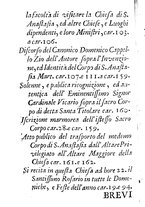 la facoltà di visitare la Chiesa di S.
Anastasia ed altre Chiese, e Luoghi
dipendenti, e loro Ministri. car. 103.
e car. 106.
Discorso del Canonico Domenico Cappello
Zio dell' Autore sopra l'Invenzione,
ed Identità del Corpo di S. Anastasia
Mart. car. 107. e 111. e 159.
Solenne, e publica recognizione, ed autentica
dell' Eminentissimo Signor
Cardinale Vicario sopra il Sacro Corpo
di detta Santa Titolare. car. 160
Iscrizione marmorea dell' istesso Sacro
Corpo car. 28. e car. 159.
Atto publico del trasporto del medemo
Corpo di S. Anastasia dall' Altare Privilegiato
all' Altare Maggiore della
Chiesa. car. 161. e 162.
Si recita in questa Chiesa ad hore 22. il
Santissimo Rosario in tutte le Domeniche,
e Feste dell' anno car. 19. e 94.
BREVI